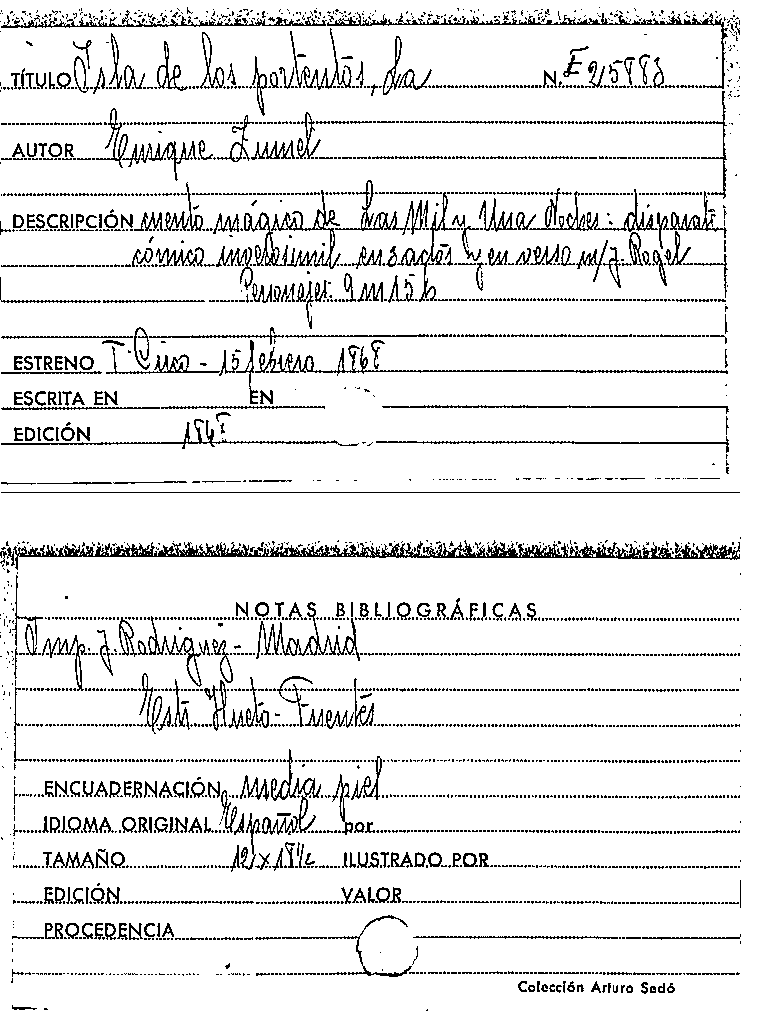 TÍTULO Isla de los portentos, La N. E 25883
AUTOR Enrique Zumel
DESCRIPCIÓN cuento mágico de Las Mil y Una Noches: disparate
cómico inverosimil en 3 actos y en verso m/ J. Rogel
Personajes: 9 m 15 h
ESTRENO T. Circo - 15 febrero 1868
ESCRITA EN EN
EDICIÓN 1868
NOTAS BIBLIOGRÁFICAS
Imp. J. Rodriguez - Madrid
Estr Hueto - Fuentes
ENCUADERNACIÓN media piel
IDIOMA ORIGINAL Español por
TAMAÑO 12 x 18 1/2 ILUSTRADO POR
EDICIÓN VALOR
PROCEDENCIA
Colección Arturo Sedó